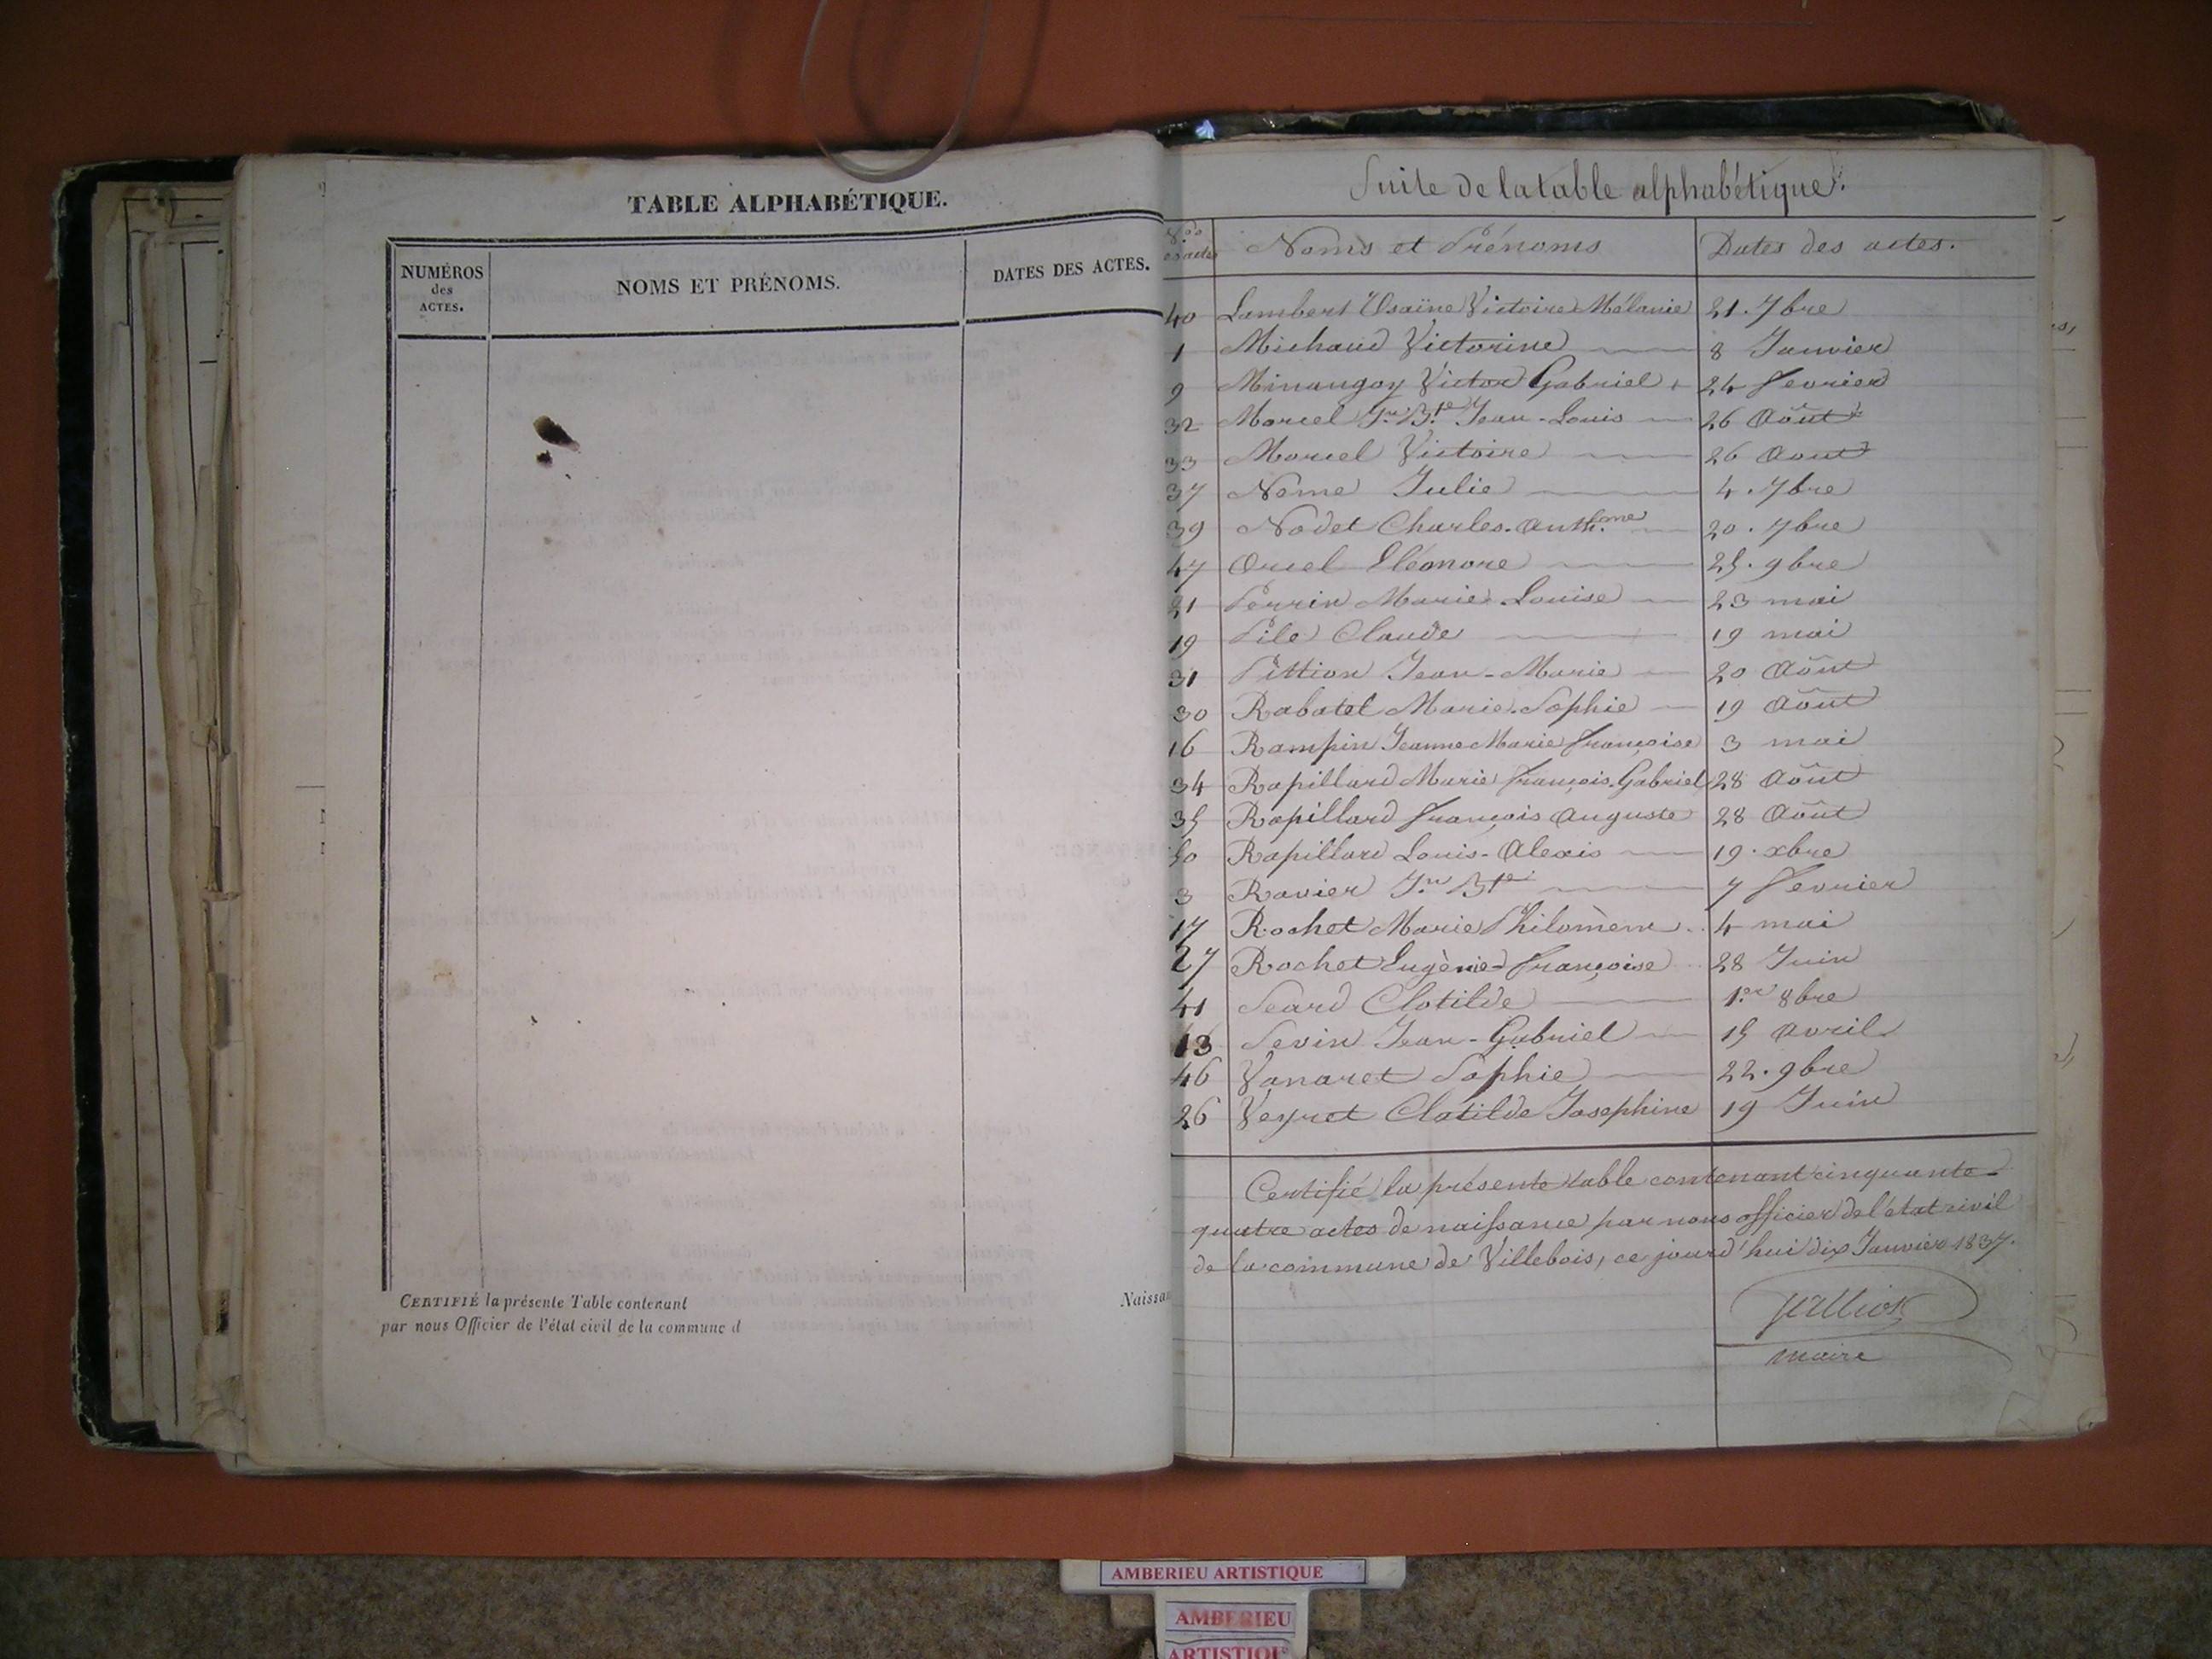 TABLE ALPHABÉTIQUE.
NUMÉROS des ACTES.
NOMS ET PRÉNOMS.
DATES DES ACTES.
CERTIFIÉ la présente Table contenant
par nous Officier de l'état civil de la commune d
Suite de la table alphabétique.
Noms et Prénoms Dates des actes.
40 Lambert Victoire Mélanie 21. 7bre
1 Michaud Victorine 8 Janvier
9 Minangoy Victor Gabriel 24 fevrier
32 Marcel Jn Bte Jean-Louis 26 Aôut
33 Marcel Victoire 26 Aout
37 Neme Julie 4. 7bre
39 Nodet Charles. Anth.me 20. 7bre
47 Orsel Eléonore 25. 9bre
21 Perrin Marie Louise 23 mai
19 Pile Claude 19 mai
31 Pittion Jean-Marie 20 Aôut
30 Rabatel Marie. Sophie 19 Aôut
16 Rampin Jeanne Marie françoise 3 mai
34 Rapillard Marie françois. Gabriel 28 Aôut
35 Rapillard françois Auguste 28 Aôut
50 Rapillard Louis-Alexis 19. xbre
3 Ravier Jn Bte 7 fevrier
17 Rochet Marie Philomène 4 mai
27 Rochet Eugènie françoise 28 Juin
41 Seard Clotilde 1.er 8bre
13 Sevin Jean-Gabriel 15 Avril
46 Vanaret Sophie 22. 9bre
26 Veyret Clotilde Josephine 19 Juin
Certifié la présente table contenant cinquante
quatre actes de naissance par nous officier de l'état civil
de la commune de Villebois, ce jourd'hui dix Janvier 1837.
maire
Naissan
AMBERIEU ARTISTIQUE
AMBERIEU
ARTISTIQUE